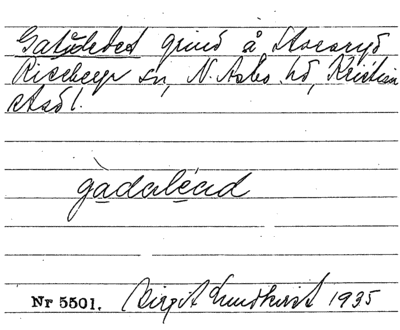 Gatuledet grind å Storaryd
Riseberga sn, N. Åsbo hd, Kristian
stads l.
gàdaléad
Nr 5501. Birgit Lundkvist 1935